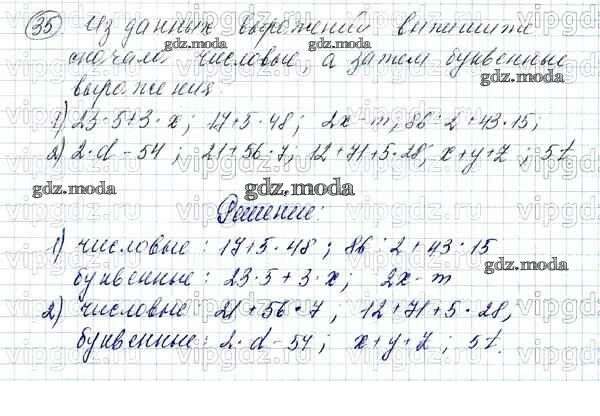 35 Из данных выражений выпишите
сначала числовые, а затем буквенные
выражения:
1) 23·5+3·x; 17+5·48; 2x-m; 86:2+43·15;
2) 2·d-54; 21+56·7; 12+71+5·28; x+y+z; 5t.
Решение:
1) числовые: 17+5·48; 86:2+43·15
буквенные: 23·5+3·x; 2x-m
2) числовые: 21+56·7; 12+71+5·28,
буквенные: 2·d-54; x+y+z; 5t.